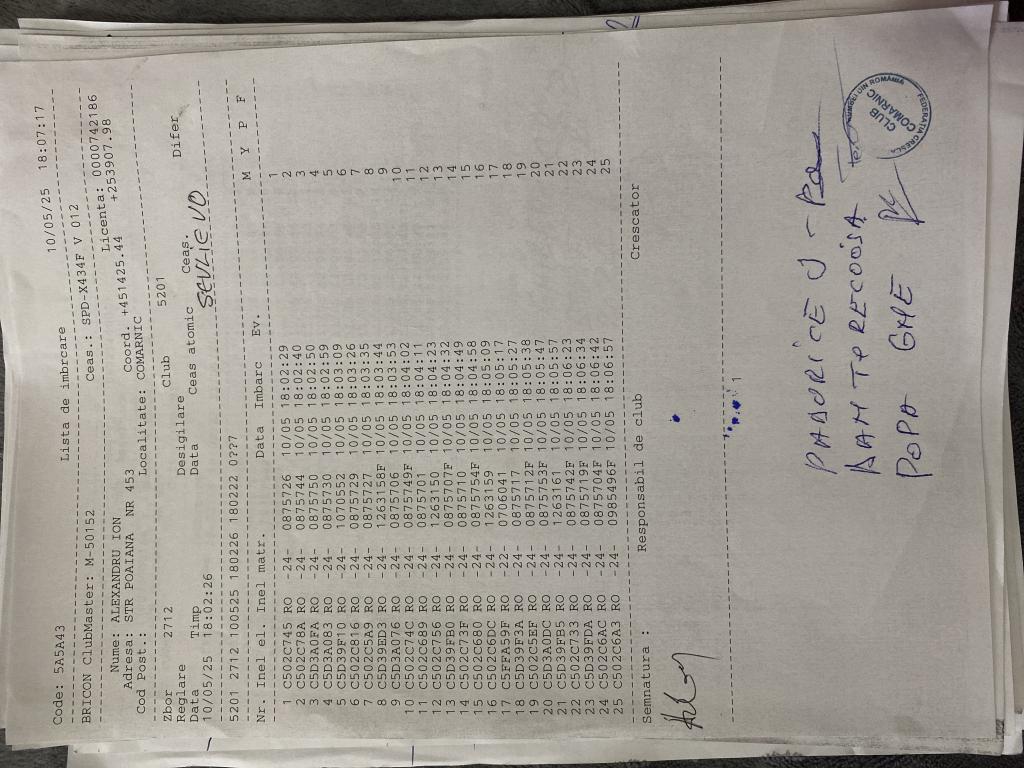 Code: 5A5A43 Lista de imbrcare 10/05/25 18:07:17
BRICON ClubMaster: M-50152 Ceas.: SPD-X434F V 012
Licenta: 0000742186
Nume: ALEXANDRU ION Coord. +451425.44 +253907.98
Adresa: STR POAIANA NR 453
Cod Post.: Localitate: COMARNIC
Zbor 2712 Club 5201
Reglare Desigilare Difer
Data Timp Data Ceas atomic Ceas.
10/05/25 18:02:26 SEVLIEVO
5201 2712 100525 180226 180222 0???7
Nr. Inel el. Inel matr. Data Imbarc Ev. M Y P F
1 C502C745 RO -24- 0875726 10/05 18:02:29 1
2 C502C78A RO -24- 0875744 10/05 18:02:40 2
3 C5D3A0FA RO -24- 0875750 10/05 18:02:50 3
4 C5D3A083 RO -24- 0875730 10/05 18:02:59 4
5 C5D39F10 RO -24- 1070552 10/05 18:03:09 5
6 C502C816 RO -24- 0875729 10/05 18:03:26 6
7 C502C5A9 RO -24- 0875727 10/05 18:03:35 7
8 C5D39ED3 RO -24- 1263158F 10/05 18:03:44 8
9 C5D3A076 RO -24- 0875706 10/05 18:03:53 9
10 C502C74C RO -24- 0875749F 10/05 18:04:02 10
11 C502C689 RO -24- 0875701 10/05 18:04:11 11
12 C502C756 RO -24- 1263150 10/05 18:04:23 12
13 C5D39FB0 RO -24- 0875707F 10/05 18:04:32 13
14 C502C73F RO -24- 0875710 10/05 18:04:49 14
15 C502C680 RO -24- 0875754F 10/05 18:04:58 15
16 C502C6DC RO -24- 1263159 10/05 18:05:09 16
17 C5FFA59F RO -22- 0706041 10/05 18:05:17 17
18 C5D39F3A RO -24- 0875717 10/05 18:05:27 18
19 C502C5EF RO -24- 0875712F 10/05 18:05:38 19
20 C5D3A0DC RO -24- 0875753F 10/05 18:05:47 20
21 C5D39FB5 RO -24- 1263161 10/05 18:05:57 21
22 C502C733 RO -24- 0875742F 10/05 18:06:23 22
23 C5D39FDA RO -24- 0875719F 10/05 18:06:34 23
24 C502C6AC RO -24- 0875704F 10/05 18:06:42 24
25 C502C6A3 RO -24- 0985496F 10/05 18:06:57 25
Semnatura : Responsabil de club Crescator
POPA GHE
CLUB
COMARNIC